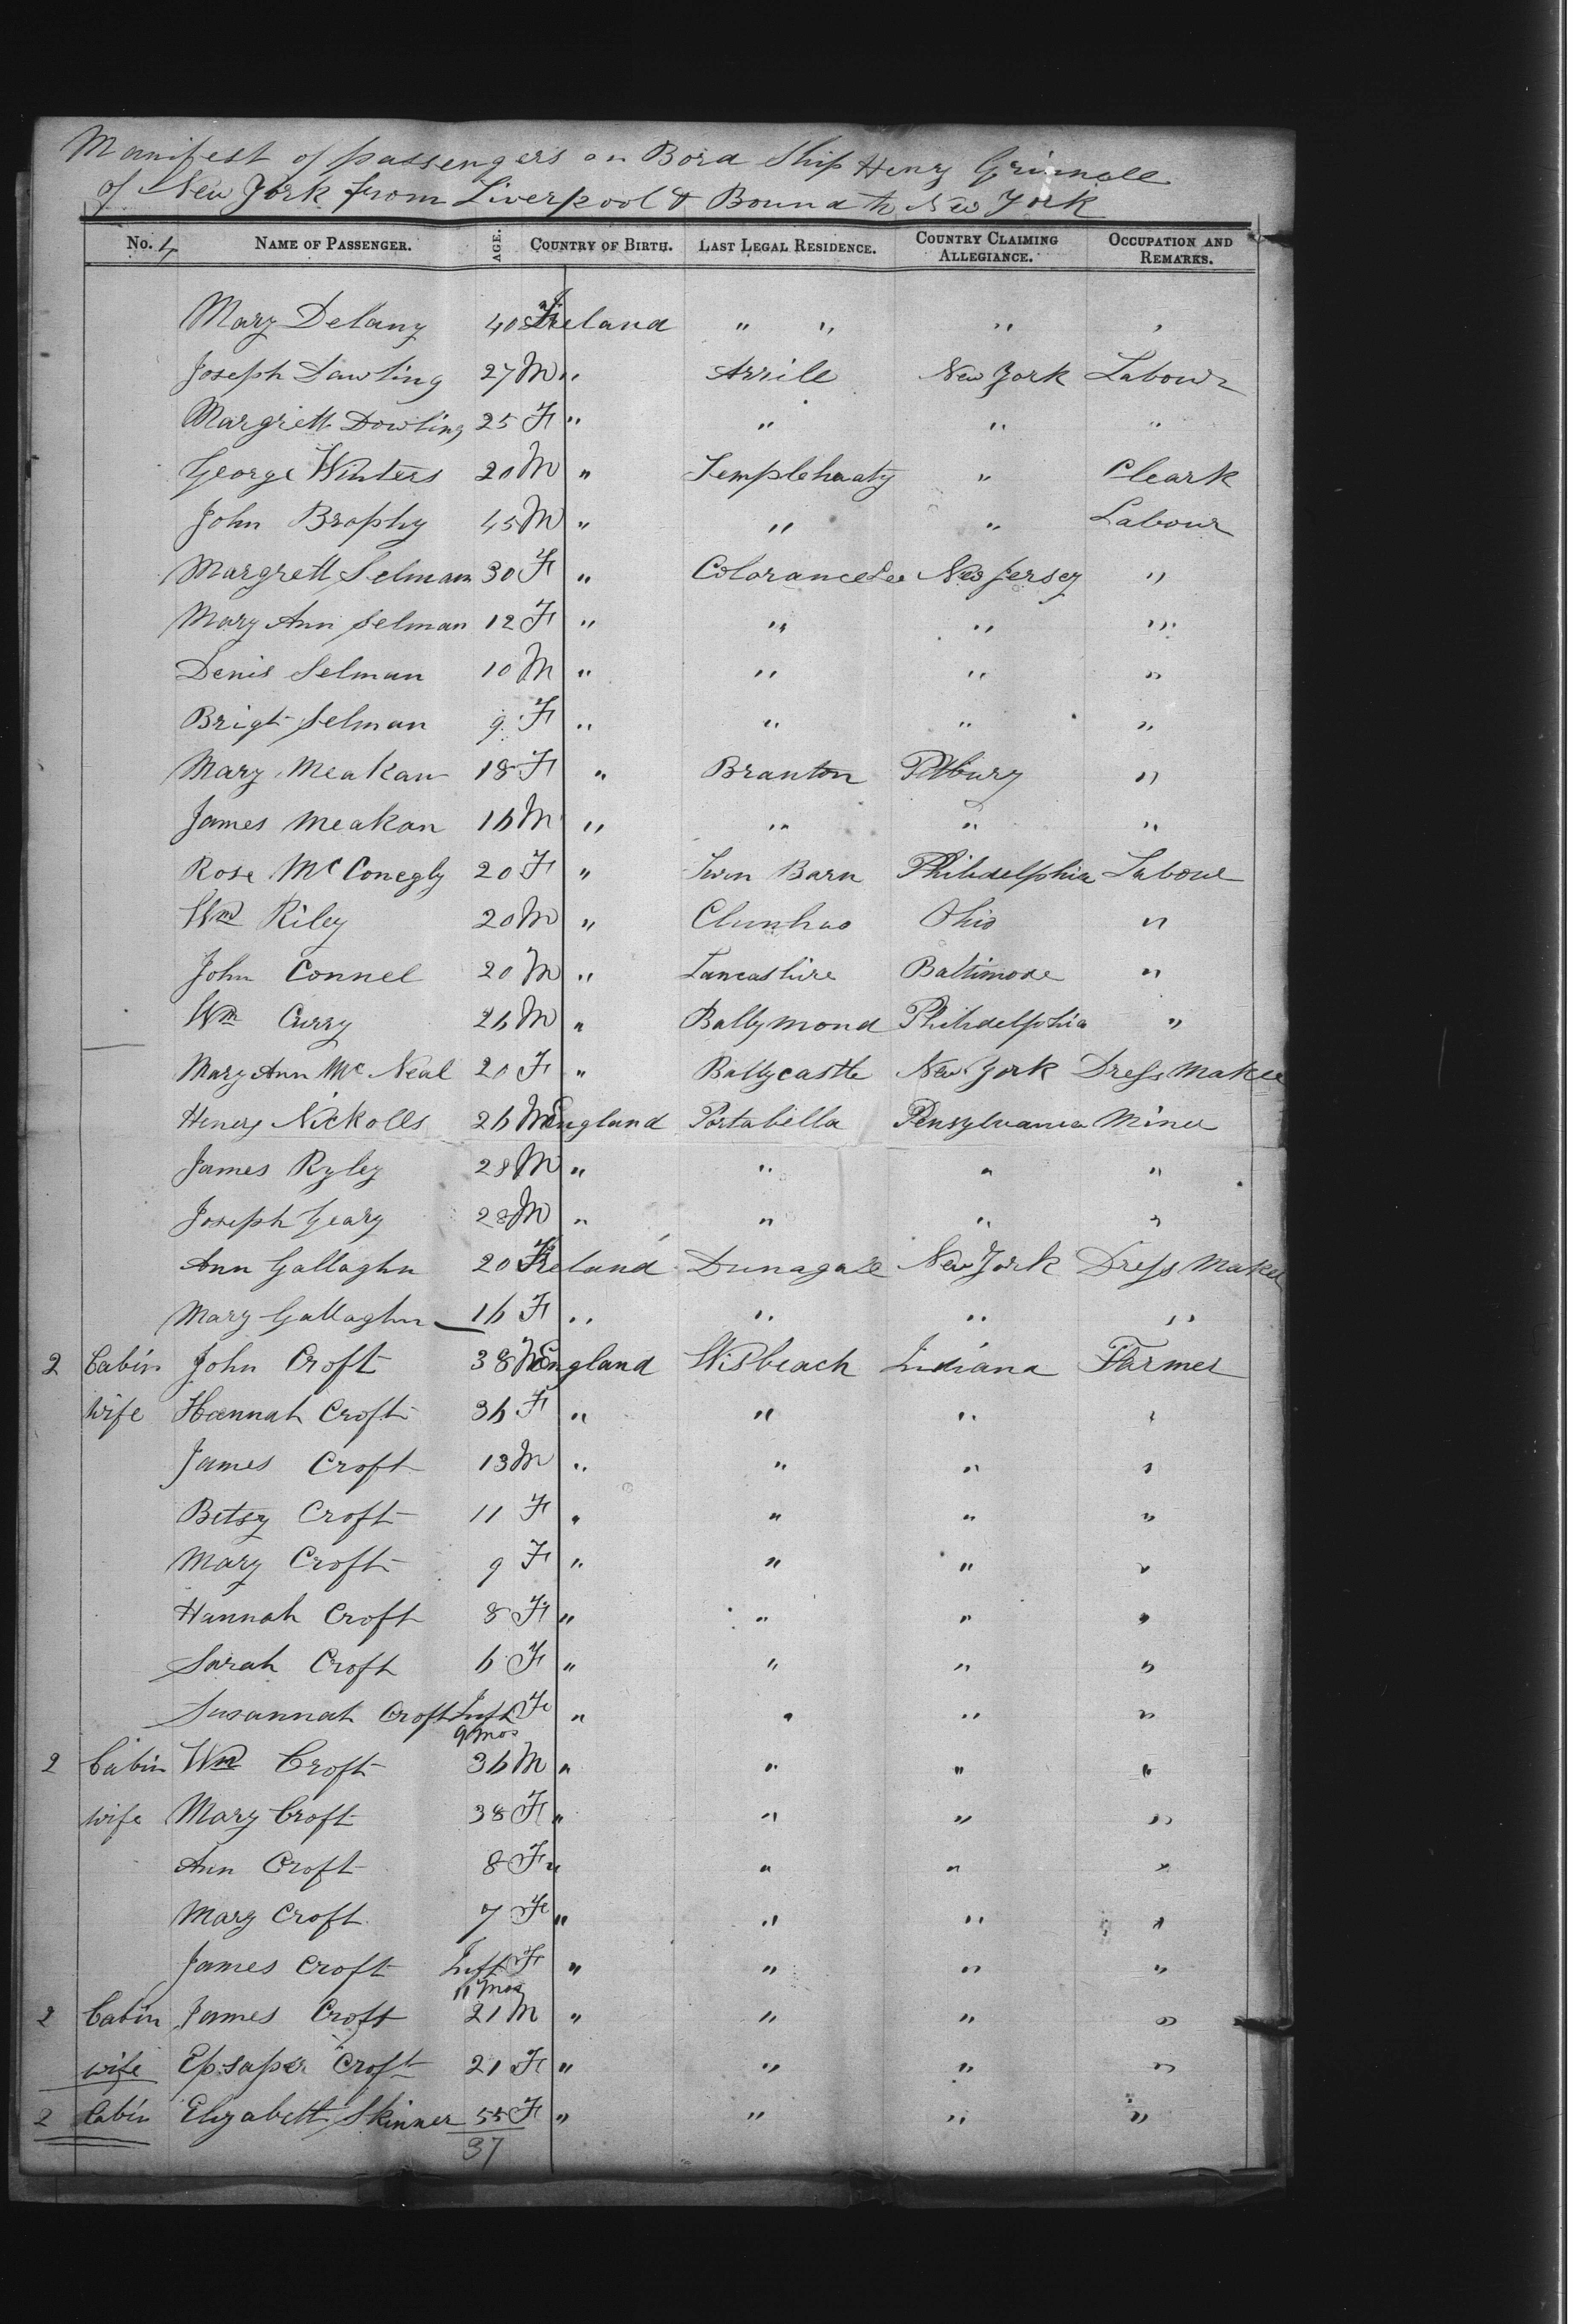 Manifest of passengers on Bord Ship Henry Grinnell
of New York from Liverpool & Bound to New York
No. 4 NAME OF PASSENGER. AGE. COUNTRY OF BIRTH. LAST LEGAL RESIDENCE. COUNTRY CLAIMING ALLEGIANCE. OCCUPATION AND REMARKS.
Mary Delany 40 F Ireland " " " "
Joseph Dowling 27 M " New York Labour
Margrett Dowling 25 F " " " "
George Winters 20 M " Templehouty " Cleark
John Brophy 45 M " " " Labour
Margrett Selman 30 F " New Jersey "
Mary Ann Selman 12 F " " " "
Denis Selman 10 M " " " "
Brigt Selman 9 F " " " "
Mary Meakan 18 F " Branton Pittburg "
James Meakan 16 M " " " "
Rose McConegly 20 F " Barn Philidelphia Labour
Wm Riley 20 M " Ohio "
John Connel 20 M " Lancashire Baltimore "
Wm Curry 26 M " Ballymond Philidelphia "
Mary Ann McNeal 20 F " Ballycastle New York Dress Maker
Henery Nickolls 26 M England Portabella Pensylvania Miner
James Ryley 28 M " " " "
Joseph Geary 28 M " " " "
Ann Gallagher 20 F Ireland Dunagale New York Dress Maker
Mary Gallagher 16 F " " " "
2 Cabin John Croft 38 M England Wisbeach Indiana Farmer
wife Hannah Croft 36 F " " " "
James Croft 13 M " " " "
Betsy Croft 11 F " " " "
Mary Croft 9 F " " " "
Hannah Croft 8 F " " " "
Sarah Croft 6 F " " " "
Susannah Croft Inft F " " " "
9 mos
2 Cabin Wm Croft 36 M " " " "
wife Mary Croft 38 F " " " "
Ann Croft 8 F " " " "
Mary Croft 7 F " " " "
James Croft Inft F " " " "
11 mos
2 Cabin James Croft 21 M " " " "
wife Croft 21 F " " " "
2 Cabin Elizabett Skinner 55 F " " " "
37